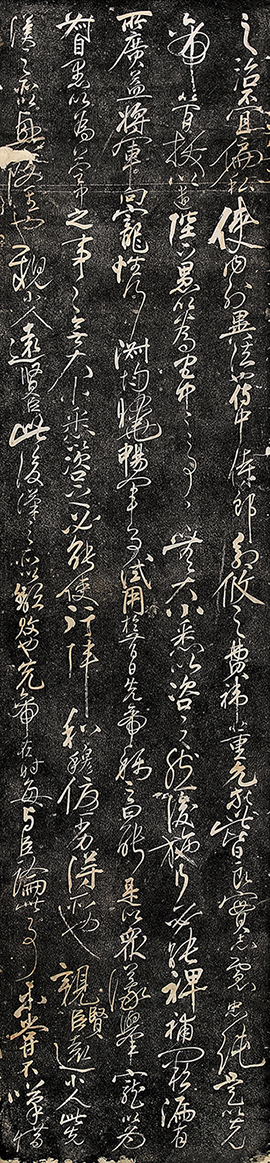 之治不宜偏私使內外異法也侍中侍郎郭攸之費禕董允等此皆良實志慮忠純是以先
帝簡拔以遺陛下愚以為宮中之事事無大小悉以咨之然後施行必能裨補闕漏有
所廣益將軍向寵性行淑均曉暢軍事試用於昔日先帝稱之曰能是以眾議舉寵以為
督愚以為營中之事事無大小悉咨之必能使行陣和穆優劣得所也親賢臣遠小人此先
漢之所以興隆也親小人遠賢臣此後漢之所以傾頹也先帝在時每與臣論此事未嘗不嘆惜